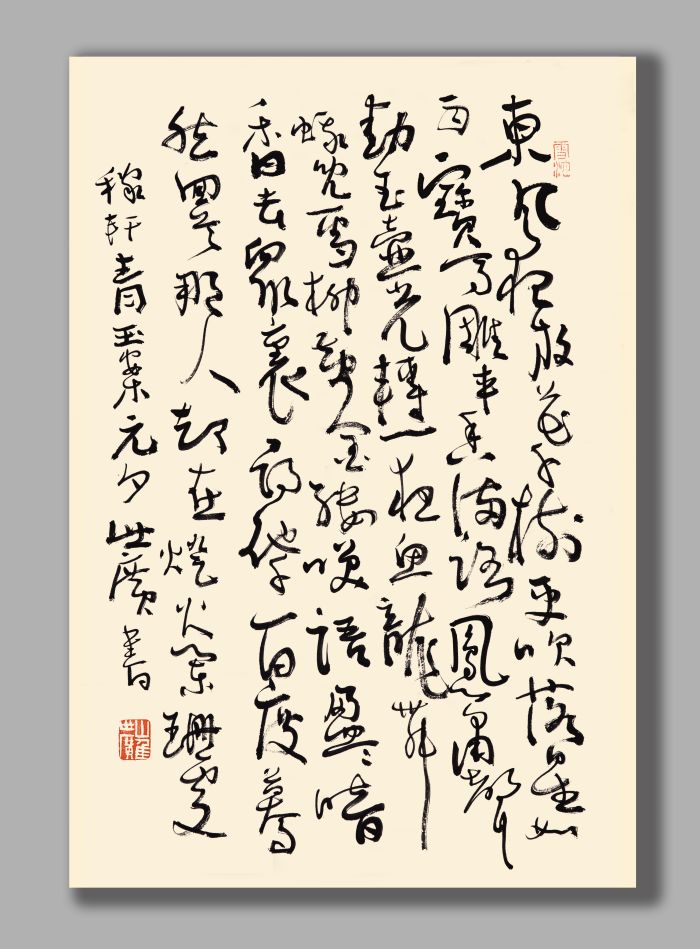 東風夜放花千樹更吹落星如
雨寶馬雕車香滿路鳳簫聲
動玉壺光轉一夜魚龍舞
蛾兒雪柳黃金縷笑語盈〻暗
香去眾裏尋他千百度驀
然回首那人卻在燈火闌珊處
稼軒青玉案元夕 世廣書
崔世廣